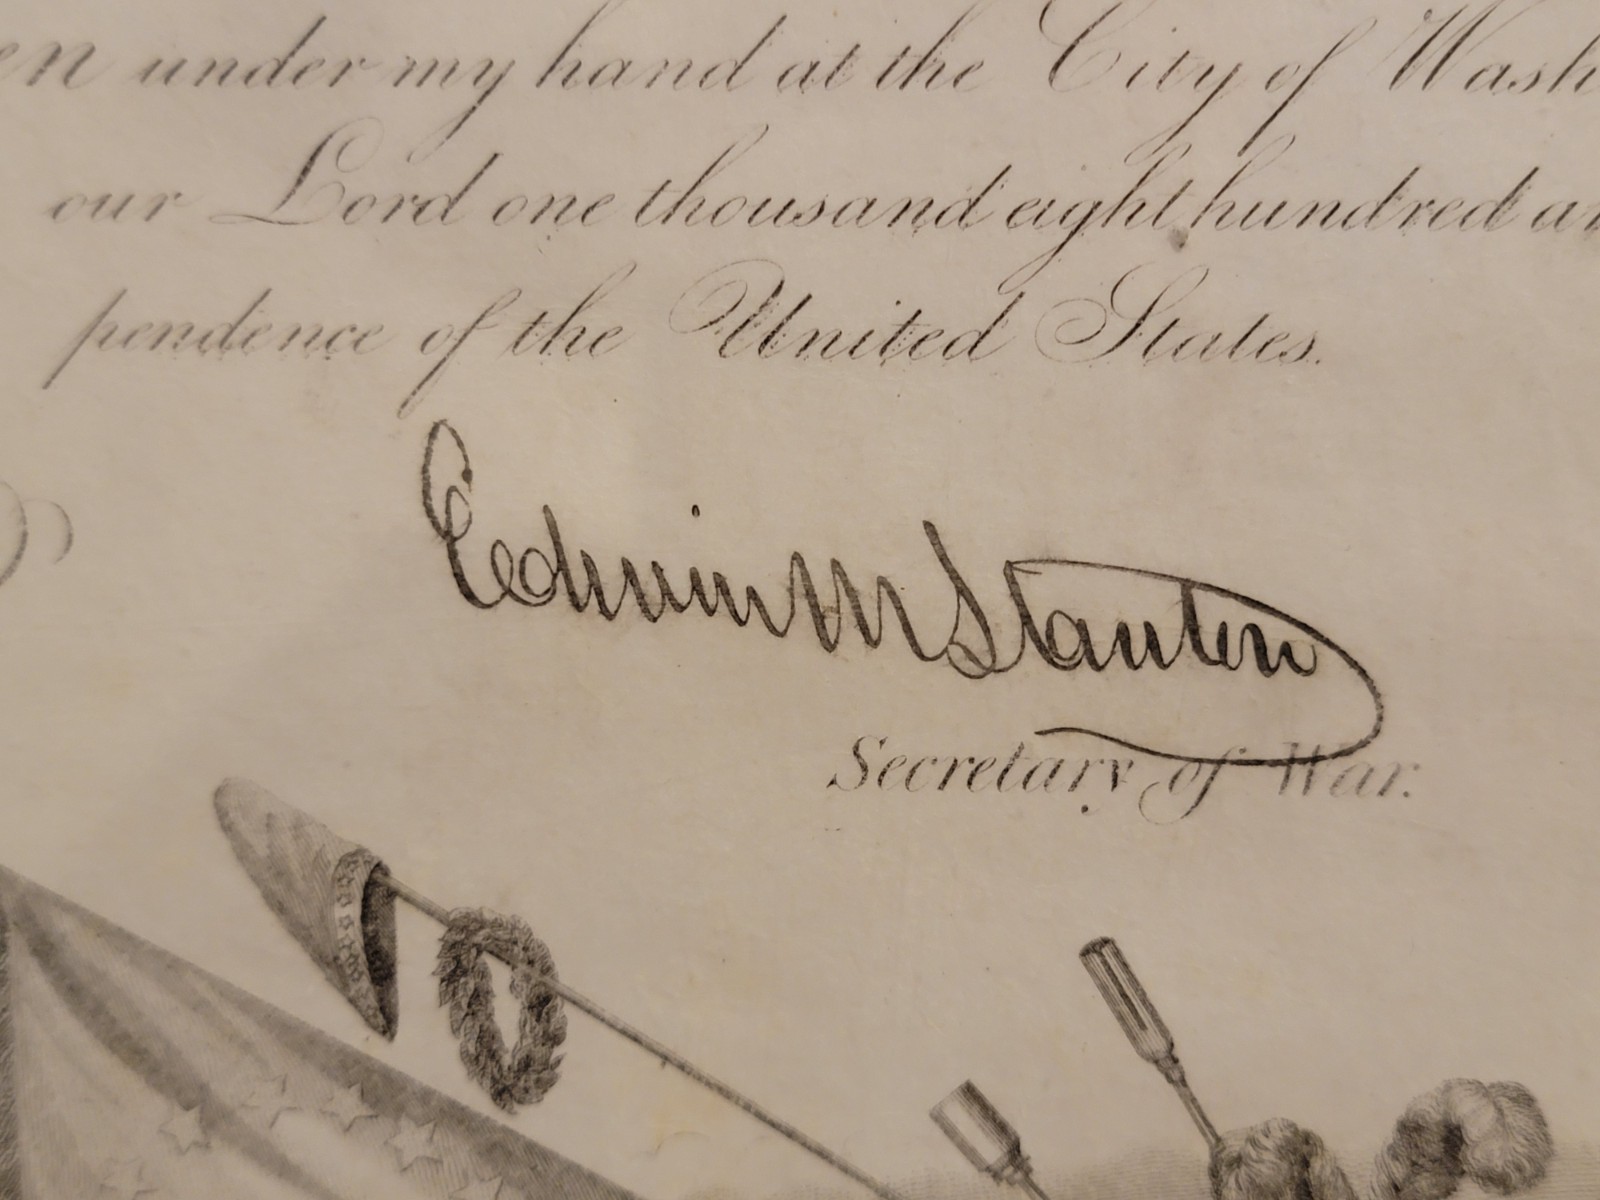 en under my hand at the City of Wash
our Lord one thousand eight hundred an
pendence of the United States.
Edwin M Stanton
Secretary of War.